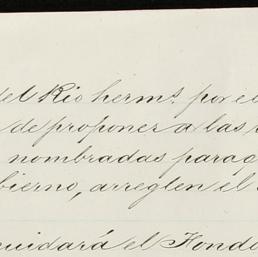 del Rio herm.s por e
de proponer a las
nombradas para
bierno, arreglen el
cuidará el Fondo